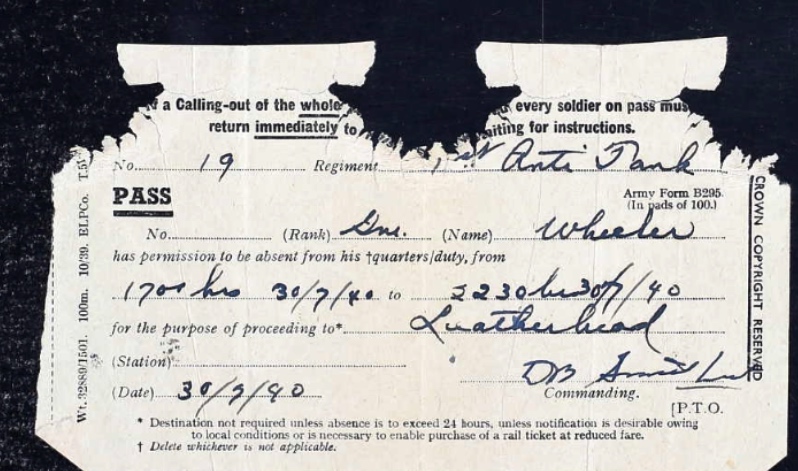 a Calling-out of the whole every soldier on pass mus
return immediately to aiting for instructions.
No. 19 Regiment 1st Anti Tank
PASS
Army Form B295.
(In pads of 100.)
No. (Rank) Gnr. (Name) Wheeler
has permission to be absent from his †quarters/duty, from
1700 hrs 30/7/40 to 2230 hrs 30/7/40
for the purpose of proceeding to* Leatherhead
(Station)
(Date) 30/7/40 DB
Commanding.
[P.T.O.
* Destination not required unless absence is to exceed 24 hours, unless notification is desirable owing
to local conditions or is necessary to enable purchase of a rail ticket at reduced fare.
† Delete whichever is not applicable.
Wt. 32889/1501. 100m. 10/39. BLPCo.
CROWN COPYRIGHT RESERVED